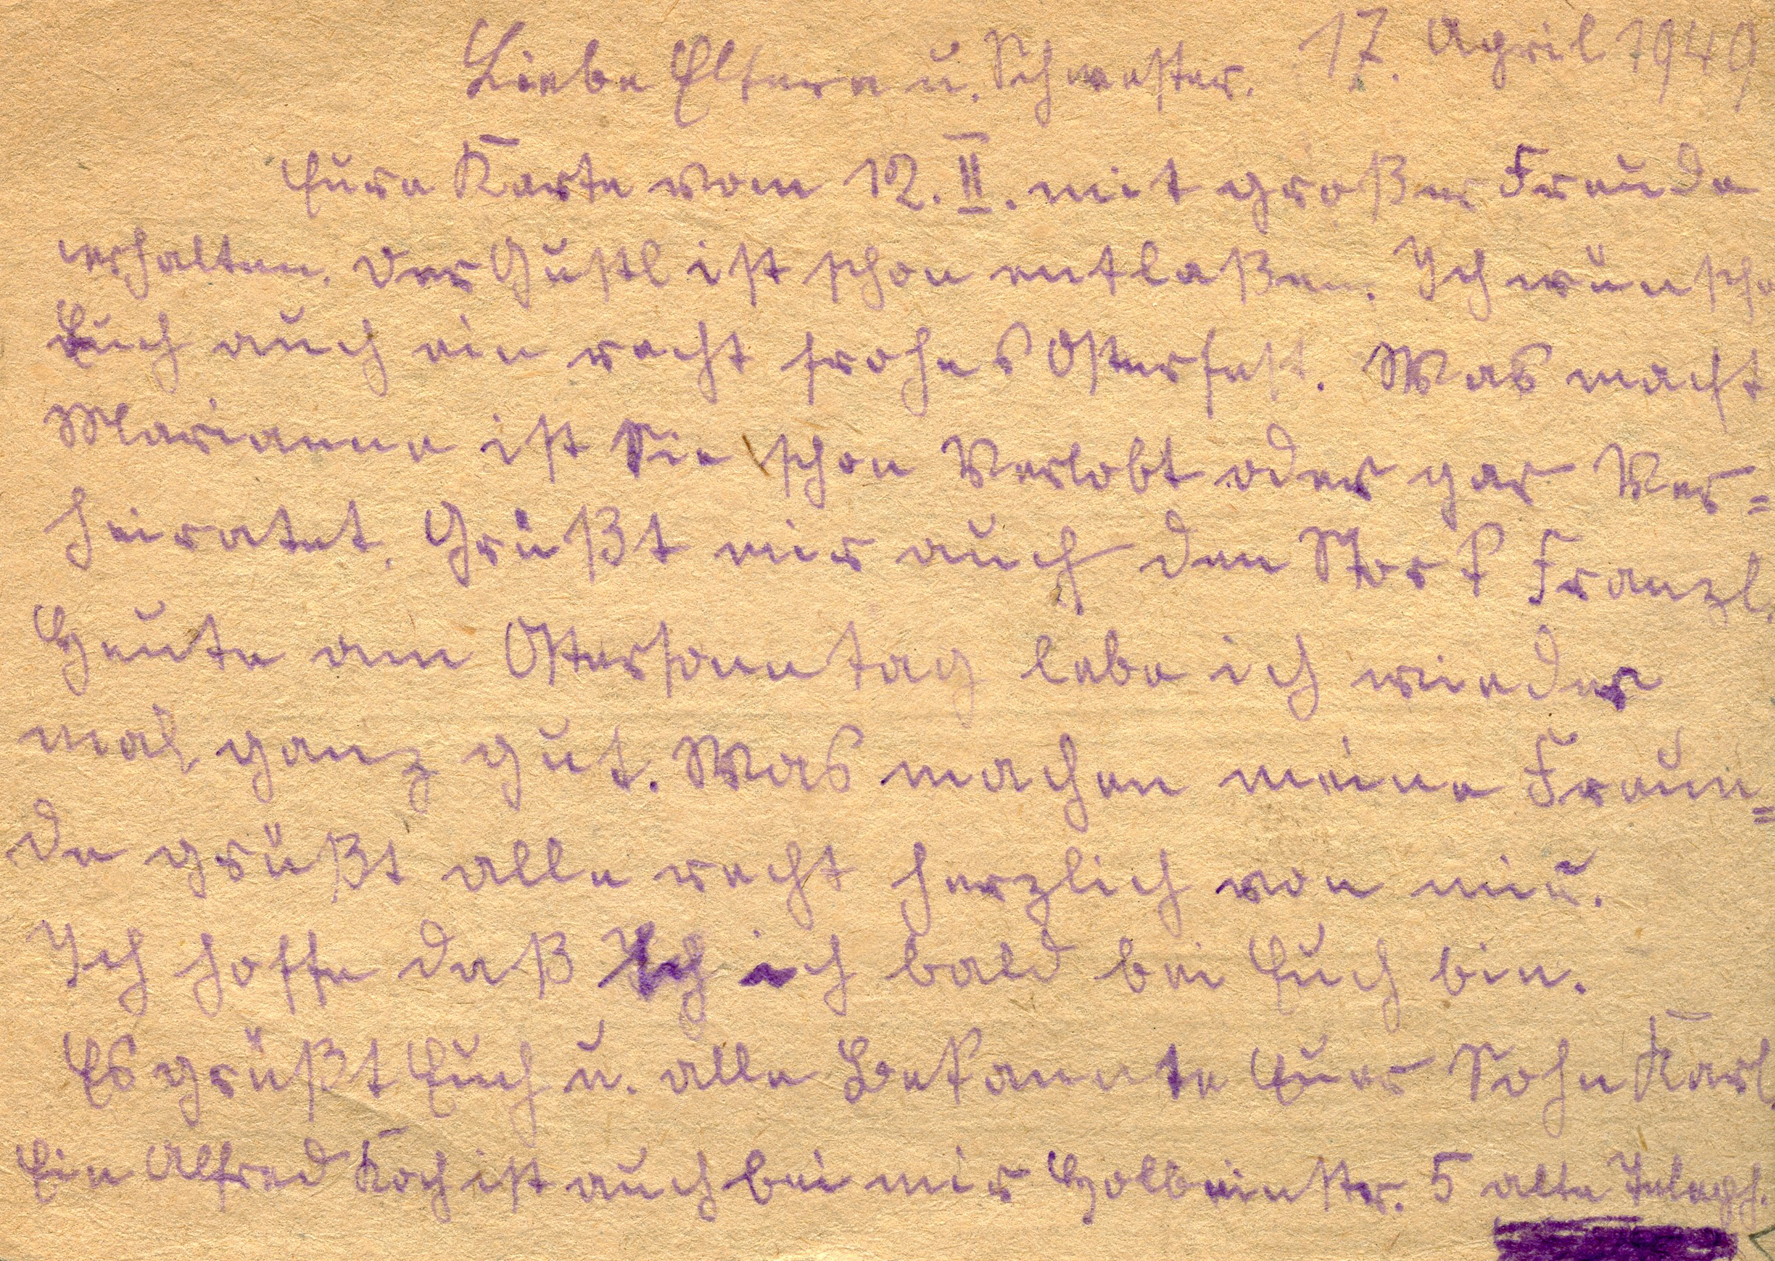 Liebe Eltern u. Schwester. 17. April 1949
Eure Karte vom 12. II. mit großer Freude
erhalten. Der Gustl ist schon entlaßen. Ich wünsche
Euch auch ein recht frohes Osterfest. Was macht
Marianne ist Sie schon Verlobt oder gar Ver=
heiratet. Grüßt mir auch den Stork Franzl.
Heute am Ostersonntag lebe ich wieder
mal ganz gut. Was machen meine Freun=
de grüßt alle recht herzlich von mir.
Ich hoffe daß ich bald bei Euch bin.
Es grüßt Euch u. alle Bekannte Euer Sohn Karl.
Ein Alfred Koch ist auch bei mir Holbeinstr. 5 alte